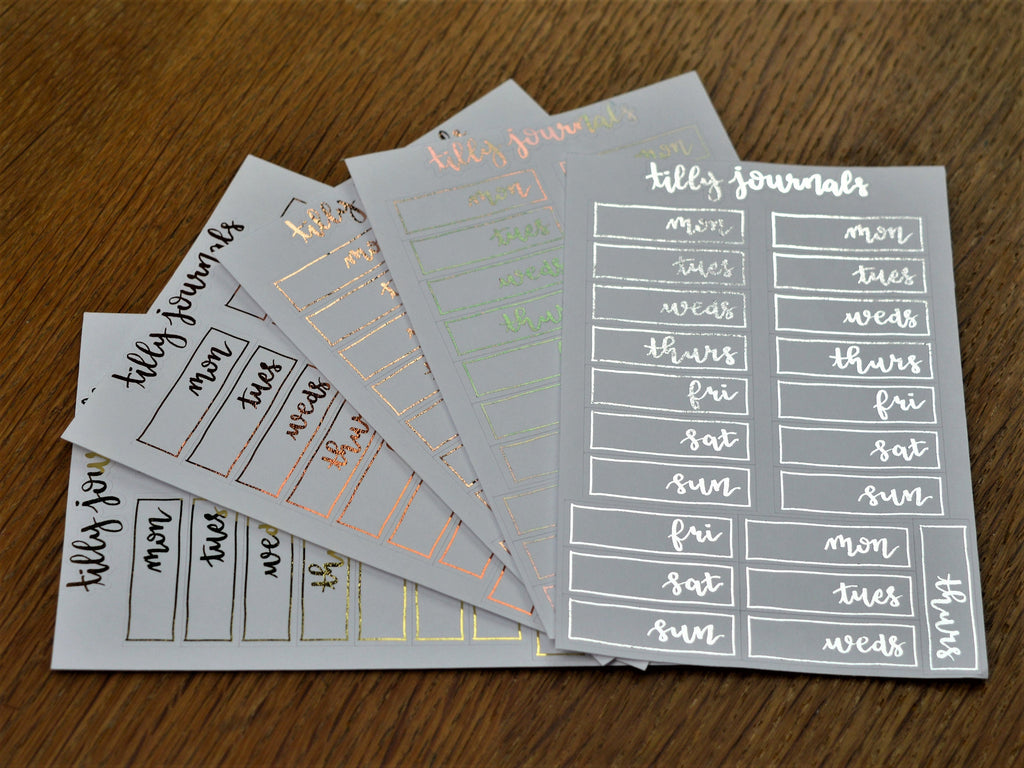 tilly journals
mon mon
tues tues
weds weds
thurs thurs
fri fri
sat sat
sun sun
fri mon
sat tues
sun weds
thurs
tilly journals
mon mon
tues
weds
tilly
tilly journals
mon
tues
weds
mon
tues